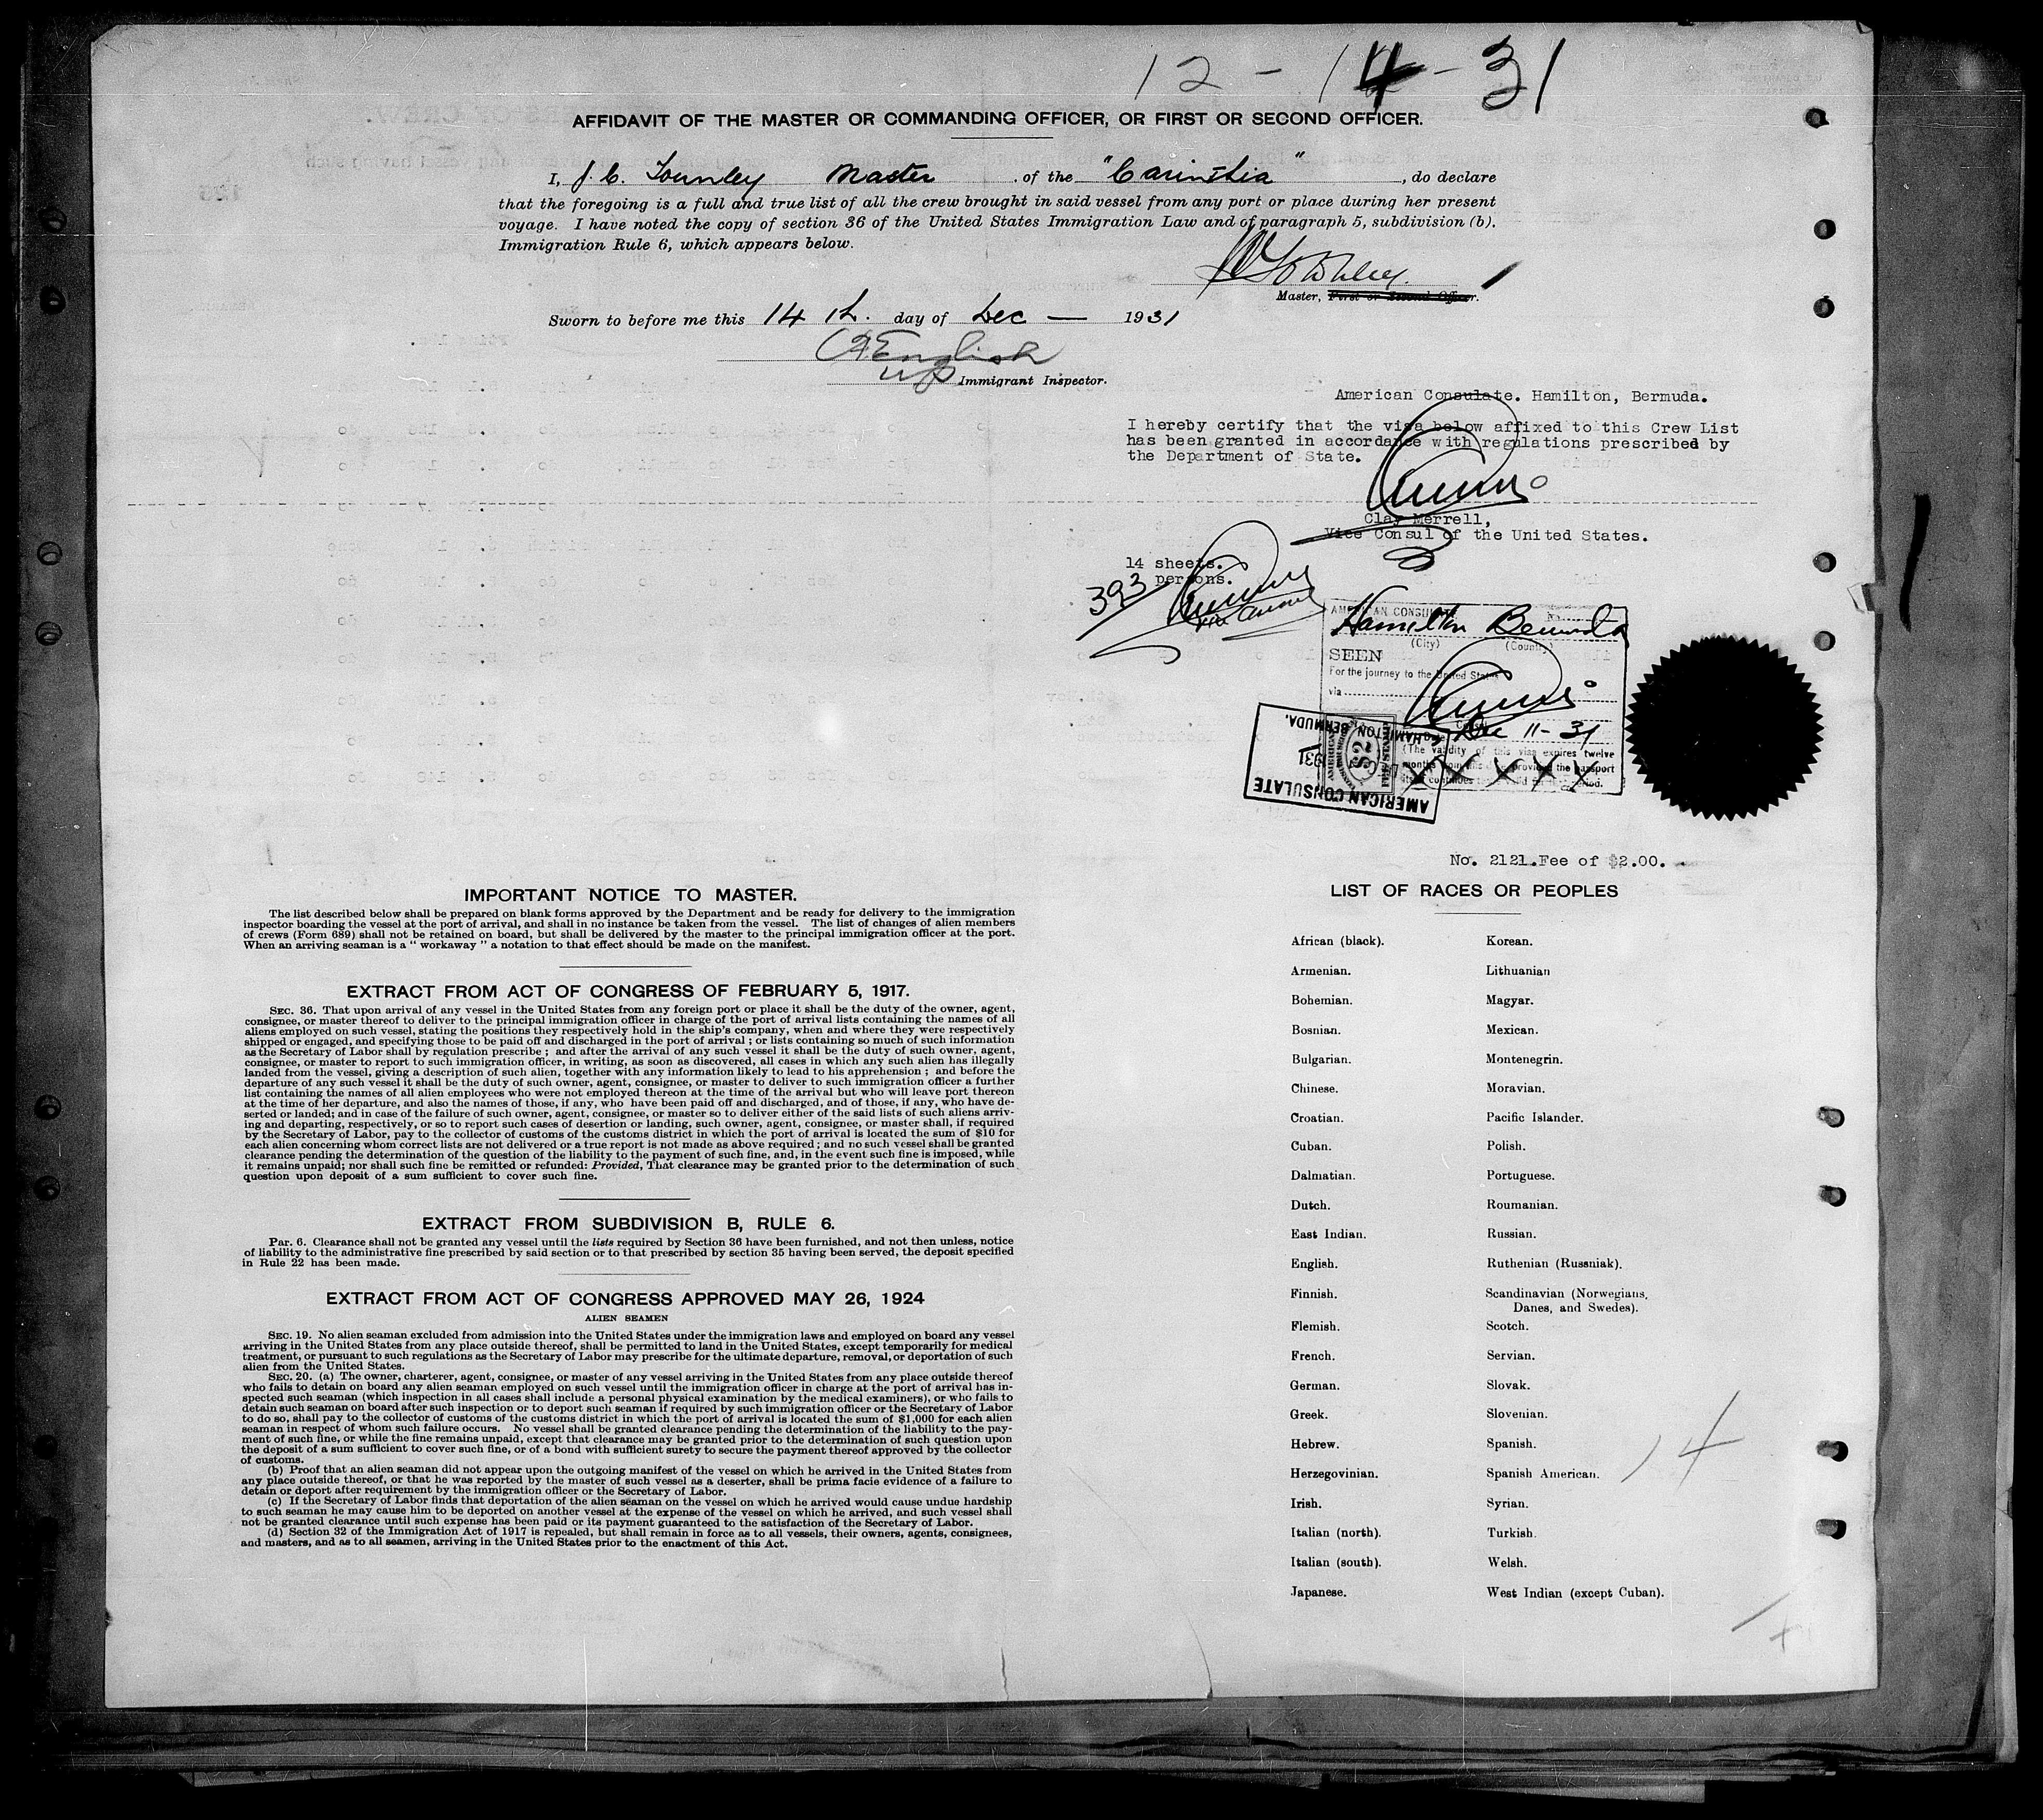 12-14-31
AFFIDAVIT OF THE MASTER OR COMMANDING OFFICER, OR FIRST OR SECOND OFFICER.
I, J. C. Townley Master of the "Carinthia", do declare
that the foregoing is a full and true list of all the crew brought in said vessel from any port or place during her present
voyage. I have noted the copy of section 36 of the United States Immigration Law and of paragraph 5, subdivision (b).
Immigration Rule 6, which appears below.
Master, First or Second Officer.
Sworn to before me this 14 th. day of Dec — 1931
English
Immigrant Inspector.
American Consulate. Hamilton, Bermuda.
I hereby certify that the visa below affixed to this Crew List
has been granted in accordance with regulations prescribed by
the Department of State.
Clay Merrell,
Vice Consul of the United States.
14 sheets.
393 persons.
AMERICAN CONSULATE
No.
Hamilton Bermuda
(City) (Country)
SEEN
For the journey to the United States
via
Consul
Date Dec 11-31
(The validity of this visa expires twelve
months from this date provided the passport
itself continues to be valid for that period.
X X X X X
AMERICAN CONSULATE
1931
HAMILTON BERMUDA.
$2
No. 2121.Fee of $2.00.
IMPORTANT NOTICE TO MASTER.
The list described below shall be prepared on blank forms approved by the Department and be ready for delivery to the immigration
inspector boarding the vessel at the port of arrival, and shall in no instance be taken from the vessel. The list of changes of alien members
of crews (Form 689) shall not be retained on board, but shall be delivered by the master to the principal immigration officer at the port.
When an arriving seaman is a " workaway " a notation to that effect should be made on the manifest.
EXTRACT FROM ACT OF CONGRESS OF FEBRUARY 5, 1917.
SEC. 36. That upon arrival of any vessel in the United States from any foreign port or place it shall be the duty of the owner, agent,
consignee, or master thereof to deliver to the principal immigration officer in charge of the port of arrival lists containing the names of all
aliens employed on such vessel, stating the positions they respectively hold in the ship's company, when and where they were respectively
shipped or engaged, and specifying those to be paid off and discharged in the port of arrival ; or lists containing so much of such information
as the Secretary of Labor shall by regulation prescribe ; and after the arrival of any such vessel it shall be the duty of such owner, agent,
consignee, or master to report to such immigration officer, in writing, as soon as discovered, all cases in which any such alien has illegally
landed from the vessel, giving a description of such alien, together with any information likely to lead to his apprehension ; and before the
departure of any such vessel it shall be the duty of such owner, agent, consignee, or master to deliver to such immigration officer a further
list containing the names of all alien employees who were not employed thereon at the time of the arrival but who will leave port thereon
at the time of her departure, and also the names of those, if any, who have been paid off and discharged, and of those, if any, who have de-
serted or landed; and in case of the failure of such owner, agent, consignee, or master so to deliver either of the said lists of such aliens arriv-
ing and departing, respectively, or so to report such cases of desertion or landing, such owner, agent, consignee, or master shall, if required
by the Secretary of Labor, pay to the collector of customs of the customs district in which the port of arrival is located the sum of $10 for
each alien concerning whom correct lists are not delivered or a true report is not made as above required ; and no such vessel shall be granted
clearance pending the determination of the question of the liability to the payment of such fine, and, in the event such fine is imposed, while
it remains unpaid; nor shall such fine be remitted or refunded: Provided, That clearance may be granted prior to the determination of such
question upon deposit of a sum sufficient to cover such fine.
EXTRACT FROM SUBDIVISION B, RULE 6.
Par. 6. Clearance shall not be granted any vessel until the lists required by Section 36 have been furnished, and not then unless, notice
of liability to the administrative fine prescribed by said section or to that prescribed by section 35 having been served, the deposit specified
in Rule 22 has been made.
EXTRACT FROM ACT OF CONGRESS APPROVED MAY 26, 1924
ALIEN SEAMEN
SEC. 19. No alien seaman excluded from admission into the United States under the immigration laws and employed on board any vessel
arriving in the United States from any place outside thereof, shall be permitted to land in the United States, except temporarily for medical
treatment, or pursuant to such regulations as the Secretary of Labor may prescribe for the ultimate departure, removal, or deportation of such
alien from the United States.
SEC. 20. (a) The owner, charterer, agent, consignee, or master of any vessel arriving in the United States from any place outside thereof
who fails to detain on board any alien seaman employed on such vessel until the immigration officer in charge at the port of arrival has in-
spected such seaman (which inspection in all cases shall include a personal physical examination by the medical examiners), or who fails to
detain such seaman on board after such inspection or to deport such seaman if required by such immigration officer or the Secretary of Labor
to do so, shall pay to the collector of customs of the customs district in which the port of arrival is located the sum of $1,000 for each alien
seaman in respect of whom such failure occurs. No vessel shall be granted clearance pending the determination of the liability to the pay-
ment of such fine, or while the fine remains unpaid, except that clearance may be granted prior to the determination of such question upon
the deposit of a sum sufficient to cover such fine, or of a bond with sufficient surety to secure the payment thereof approved by the collector
of customs.
(b) Proof that an alien seaman did not appear upon the outgoing manifest of the vessel on which he arrived in the United States from
any place outside thereof, or that he was reported by the master of such vessel as a deserter, shall be prima facie evidence of a failure to
detain or deport after requirement by the immigration officer or the Secretary of Labor.
(c) If the Secretary of Labor finds that deportation of the alien seaman on the vessel on which he arrived would cause undue hardship
to such seaman he may cause him to be deported on another vessel at the expense of the vessel on which he arrived, and such vessel shall
not be granted clearance until such expense has been paid or its payment guaranteed to the satisfaction of the Secretary of Labor.
(d) Section 32 of the Immigration Act of 1917 is repealed, but shall remain in force as to all vessels, their owners, agents, consignees,
and masters, and as to all seamen, arriving in the United States prior to the enactment of this Act.
LIST OF RACES OR PEOPLES
African (black). Korean.
Armenian. Lithuanian
Bohemian. Magyar.
Bosnian. Mexican.
Bulgarian. Montenegrin.
Chinese. Moravian.
Croatian. Pacific Islander.
Cuban. Polish.
Dalmatian. Portuguese.
Dutch. Roumanian.
East Indian. Russian.
English. Ruthenian (Russniak).
Finnish. Scandinavian (Norwegians,
Danes, and Swedes).
Flemish. Scotch.
French. Servian.
German. Slovak.
Greek. Slovenian.
Hebrew. Spanish.
Herzegovinian. Spanish American.
14
Irish. Syrian.
Italian (north). Turkish.
Italian (south). Welsh.
Japanese. West Indian (except Cuban).